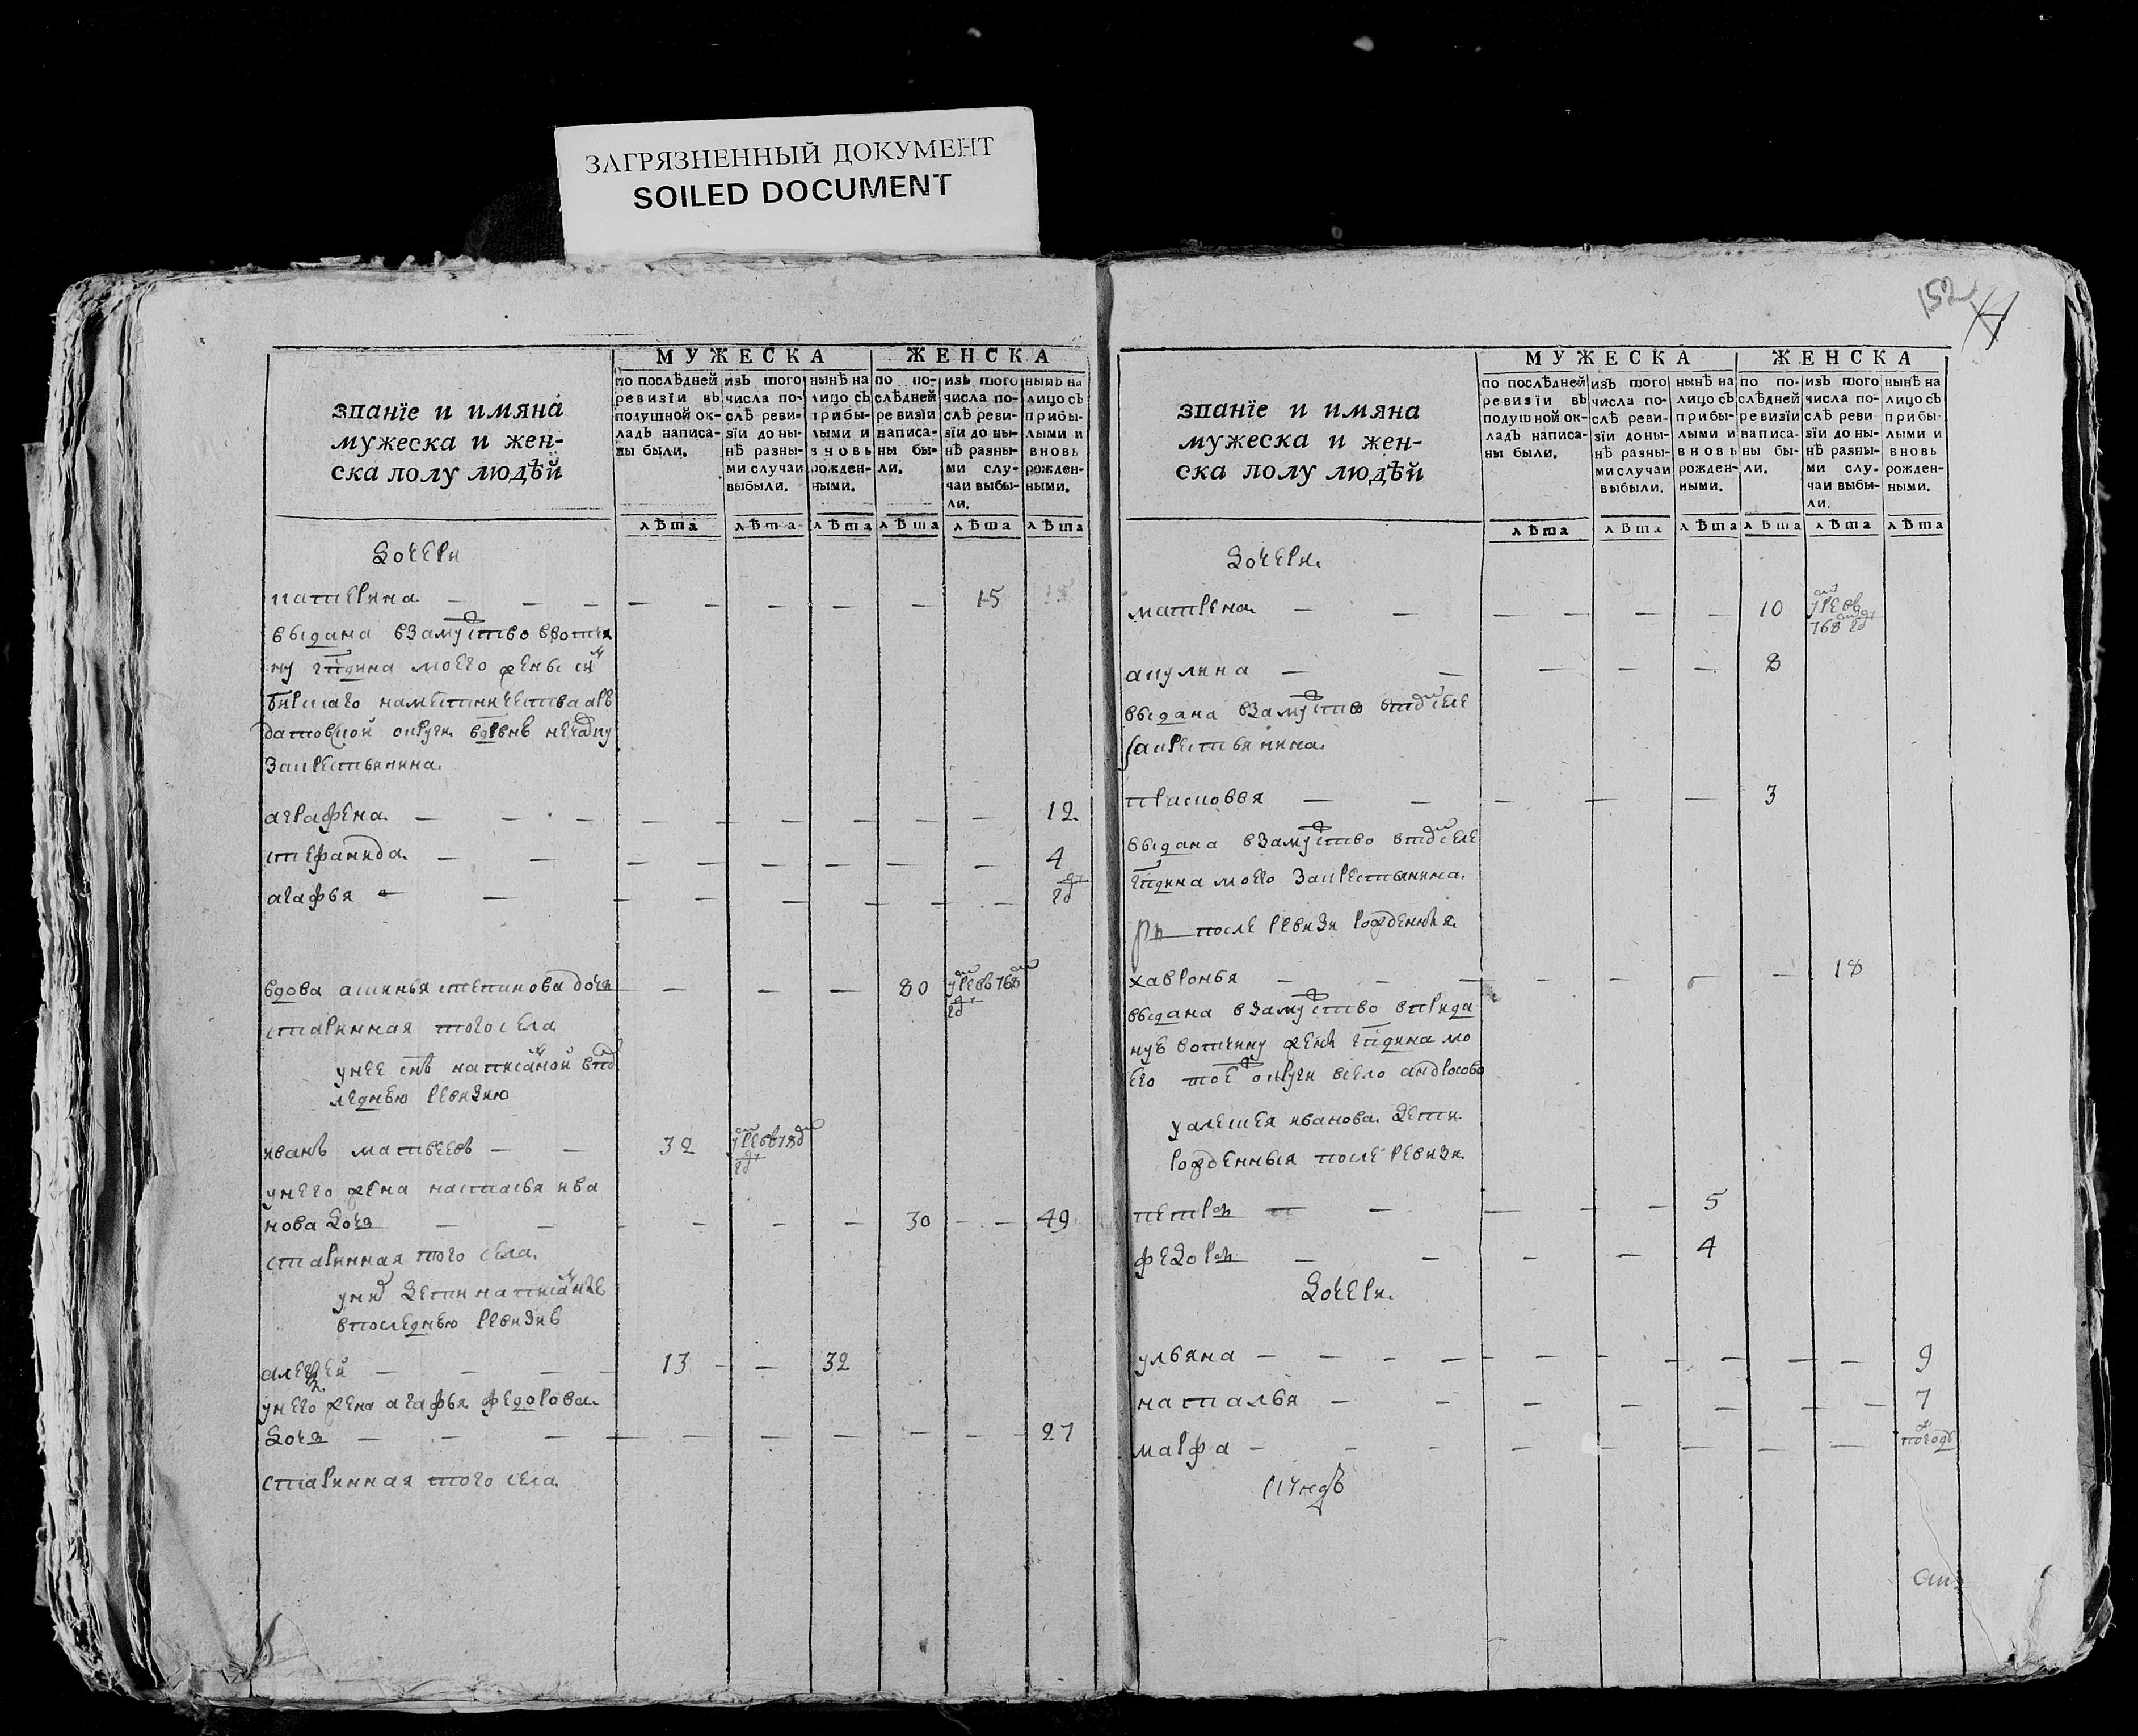 ЗАГРЯЗНЕННЫЙ ДОКУМЕНТ
SOILED DOCUMENT
152
МУЖЕСКА
ЖЕНСКА
званїе и имяна
мужеска и жен-
ска полу людѣй
по послѣдней
ревизїи въ
подушной ок-
ладъ написа-
ны были.
изъ того
числа по-
слѣ реви-
зїи до ны-
нѣ разны-
ми случаи
выбыли.
нынѣ на
лицо съ
прибы-
лыми и
вновь
рожден-
ными.
по по-
слѣдней
ревизїи
написа-
ны бы-
ли.
изъ того
числа по-
слѣ реви-
зїи до ны-
нѣ разны-
ми слу-
чаи выбы-
ли.
нынѣ на
лицо съ
прибы-
лыми и
вновь
рожден-
ными.
лѣта лѣта лѣта лѣта лѣта лѣта
дочери
катерина 15
выдана взамуство ввотчи
ну гпдина моего жены сим
бирскаго наместничества
округи
закрестьянина
аграфена 12
стефанида 4
агафья гд
вдова аксинья степанова дочь 80
старинная того села
унее снъ написаной впос
леднею ревизию
иванъ матвеевъ 32
унего жена настасья ива
нова дочь 30 49
старинная того села
уних дети написаные
впоследнею ревизию
алексей 13 32
унего жена агафья федорова
дочь 27
старинная того села
МУЖЕСКА
ЖЕНСКА
званїе и имяна
мужеска и жен-
ска полу людѣй
по послѣдней
ревизїи въ
подушной ок-
ладъ написа-
ны были.
изъ того
числа по-
слѣ реви-
зїи до ны-
нѣ разны-
ми случаи
выбыли.
нынѣ на
лицо съ
прибы-
лыми и
вновь
рожден-
ными.
по по-
слѣдней
ревизїи
написа-
ны бы-
ли.
изъ того
числа по-
слѣ реви-
зїи до ны-
нѣ разны-
ми слу-
чаи выбы-
ли.
нынѣ на
лицо съ
прибы-
лыми и
вновь
рожден-
ными.
лѣта лѣта лѣта лѣта лѣта лѣта
дочери
матрена 10
768 гд
акулина 8
выдана взамуство
закрестьянина
прасковья 3
выдана взамуство
гпдина моего закрестьянина
после ревизи рожденная
хавронья 18
выдана взамуство
вотчину жены гпдина мо
его тое округи всело андросово
уалексея иванова дети
рожденныя после ревизи
петръ 5
федоръ 4
дочери
ульяна 9
наталья 7
марфа полгода